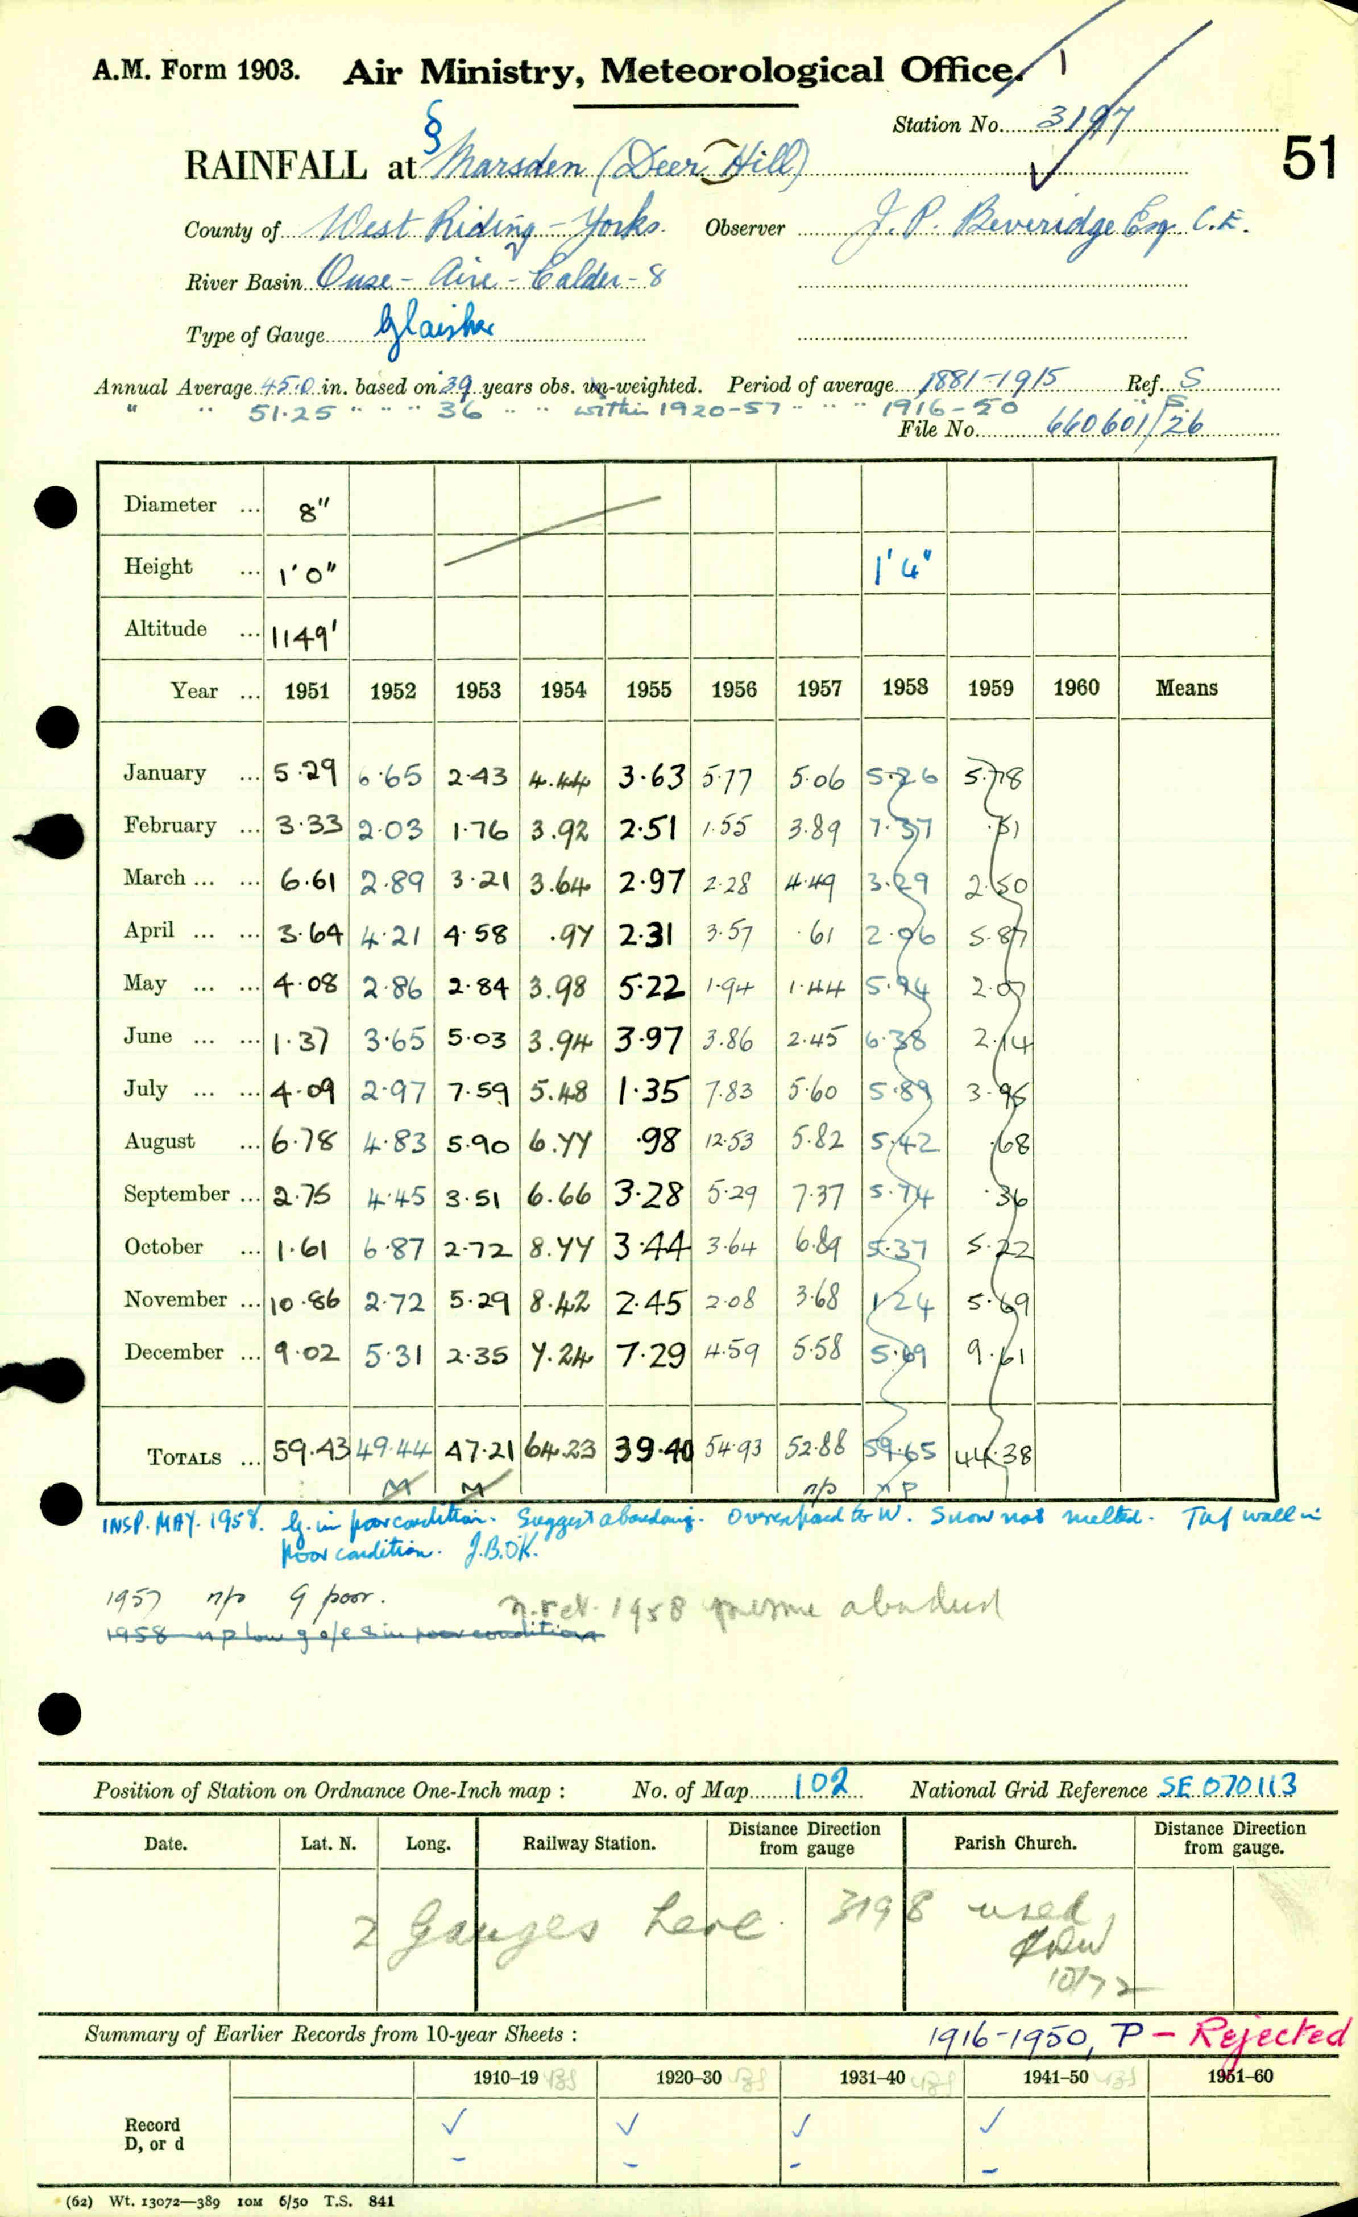 A.M. Form 1903. Air Ministry, Meteorological Office. 1
Station No. 3197
51
§
RAINFALL at Marsden (Deer Hill)
County of West Riding - Yorks. Observer J. P. Beveridge Esq. C.E.
River Basin Ouse - Aire - Calder - 8
Type of Gauge Glaisher
Annual Average 45.0 in. based on 39 years obs. un-weighted. Period of average 1881-1915 Ref. S
" " 51.25 " " " 36 " " within 1920-57 " " " 1916-50 " S.
File No. 660601/26
Diameter ... 8"
Height ... 1'0" 1'4"
Altitude ... 1149'
Year ... 1951 1952 1953 1954 1955 1956 1957 1958 1959 1960 Means
January ... 5.29 6.65 2.43 4.44 3.63 5.77 5.06 5.26 5.78
February ... 3.33 2.03 1.76 3.92 2.51 1.55 3.89 7.37 .51
March ... ... 6.61 2.89 3.21 3.64 2.97 2.28 4.49 3.29 2.50
April ... ... 3.64 4.21 4.58 .97 2.31 3.57 .61 2.96 5.87
May ... ... 4.08 2.86 2.84 3.98 5.22 1.94 1.44 5.94 2.07
June ... ... 1.37 3.65 5.03 3.94 3.97 3.86 2.45 6.38 2.14
July ... ... 4.09 2.97 7.59 5.48 1.35 7.83 5.60 5.89 3.95
August ... 6.78 4.83 5.90 6.77 .98 12.53 5.82 5.42 .68
September ... 2.75 4.45 3.51 6.66 3.28 5.29 7.37 5.74 .36
October ... 1.61 6.87 2.72 8.77 3.44 3.64 6.89 5.37 5.22
November ... 10.86 2.72 5.29 8.42 2.45 2.08 3.68 1.24 5.69
December ... 9.02 5.31 2.35 7.24 7.29 4.59 5.58 5.69 9.61
TOTALS ... 59.43 49.44 47.21 64.23 39.40 54.93 52.88 59.65 44.38
M M n/p n p
INSP. MAY. 1958. G. in poor condition. Suggest abandoning. Overexposed to W. Snow not melted. Turf wall in
poor condition. J.B.OK.
1957 n/p G poor.
1958 n p low g o/e & in poor condition
1958 presume abandoned
Position of Station on Ordnance One-Inch map : No. of Map 102 National Grid Reference SE 070113
Date. Lat. N. Long. Railway Station. Distance from Direction gauge Parish Church. Distance from Direction gauge.
2 Gauges here. 3198 used
10/72
Summary of Earlier Records from 10-year Sheets : 1916-1950, P - Rejected
1910–19 1920–30 1931–40 1941–50 1951–60
Record ✓ ✓ ✓ ✓
D, or d - - - -
(62) Wt. 13072—389 10M 6/50 T.S. 841